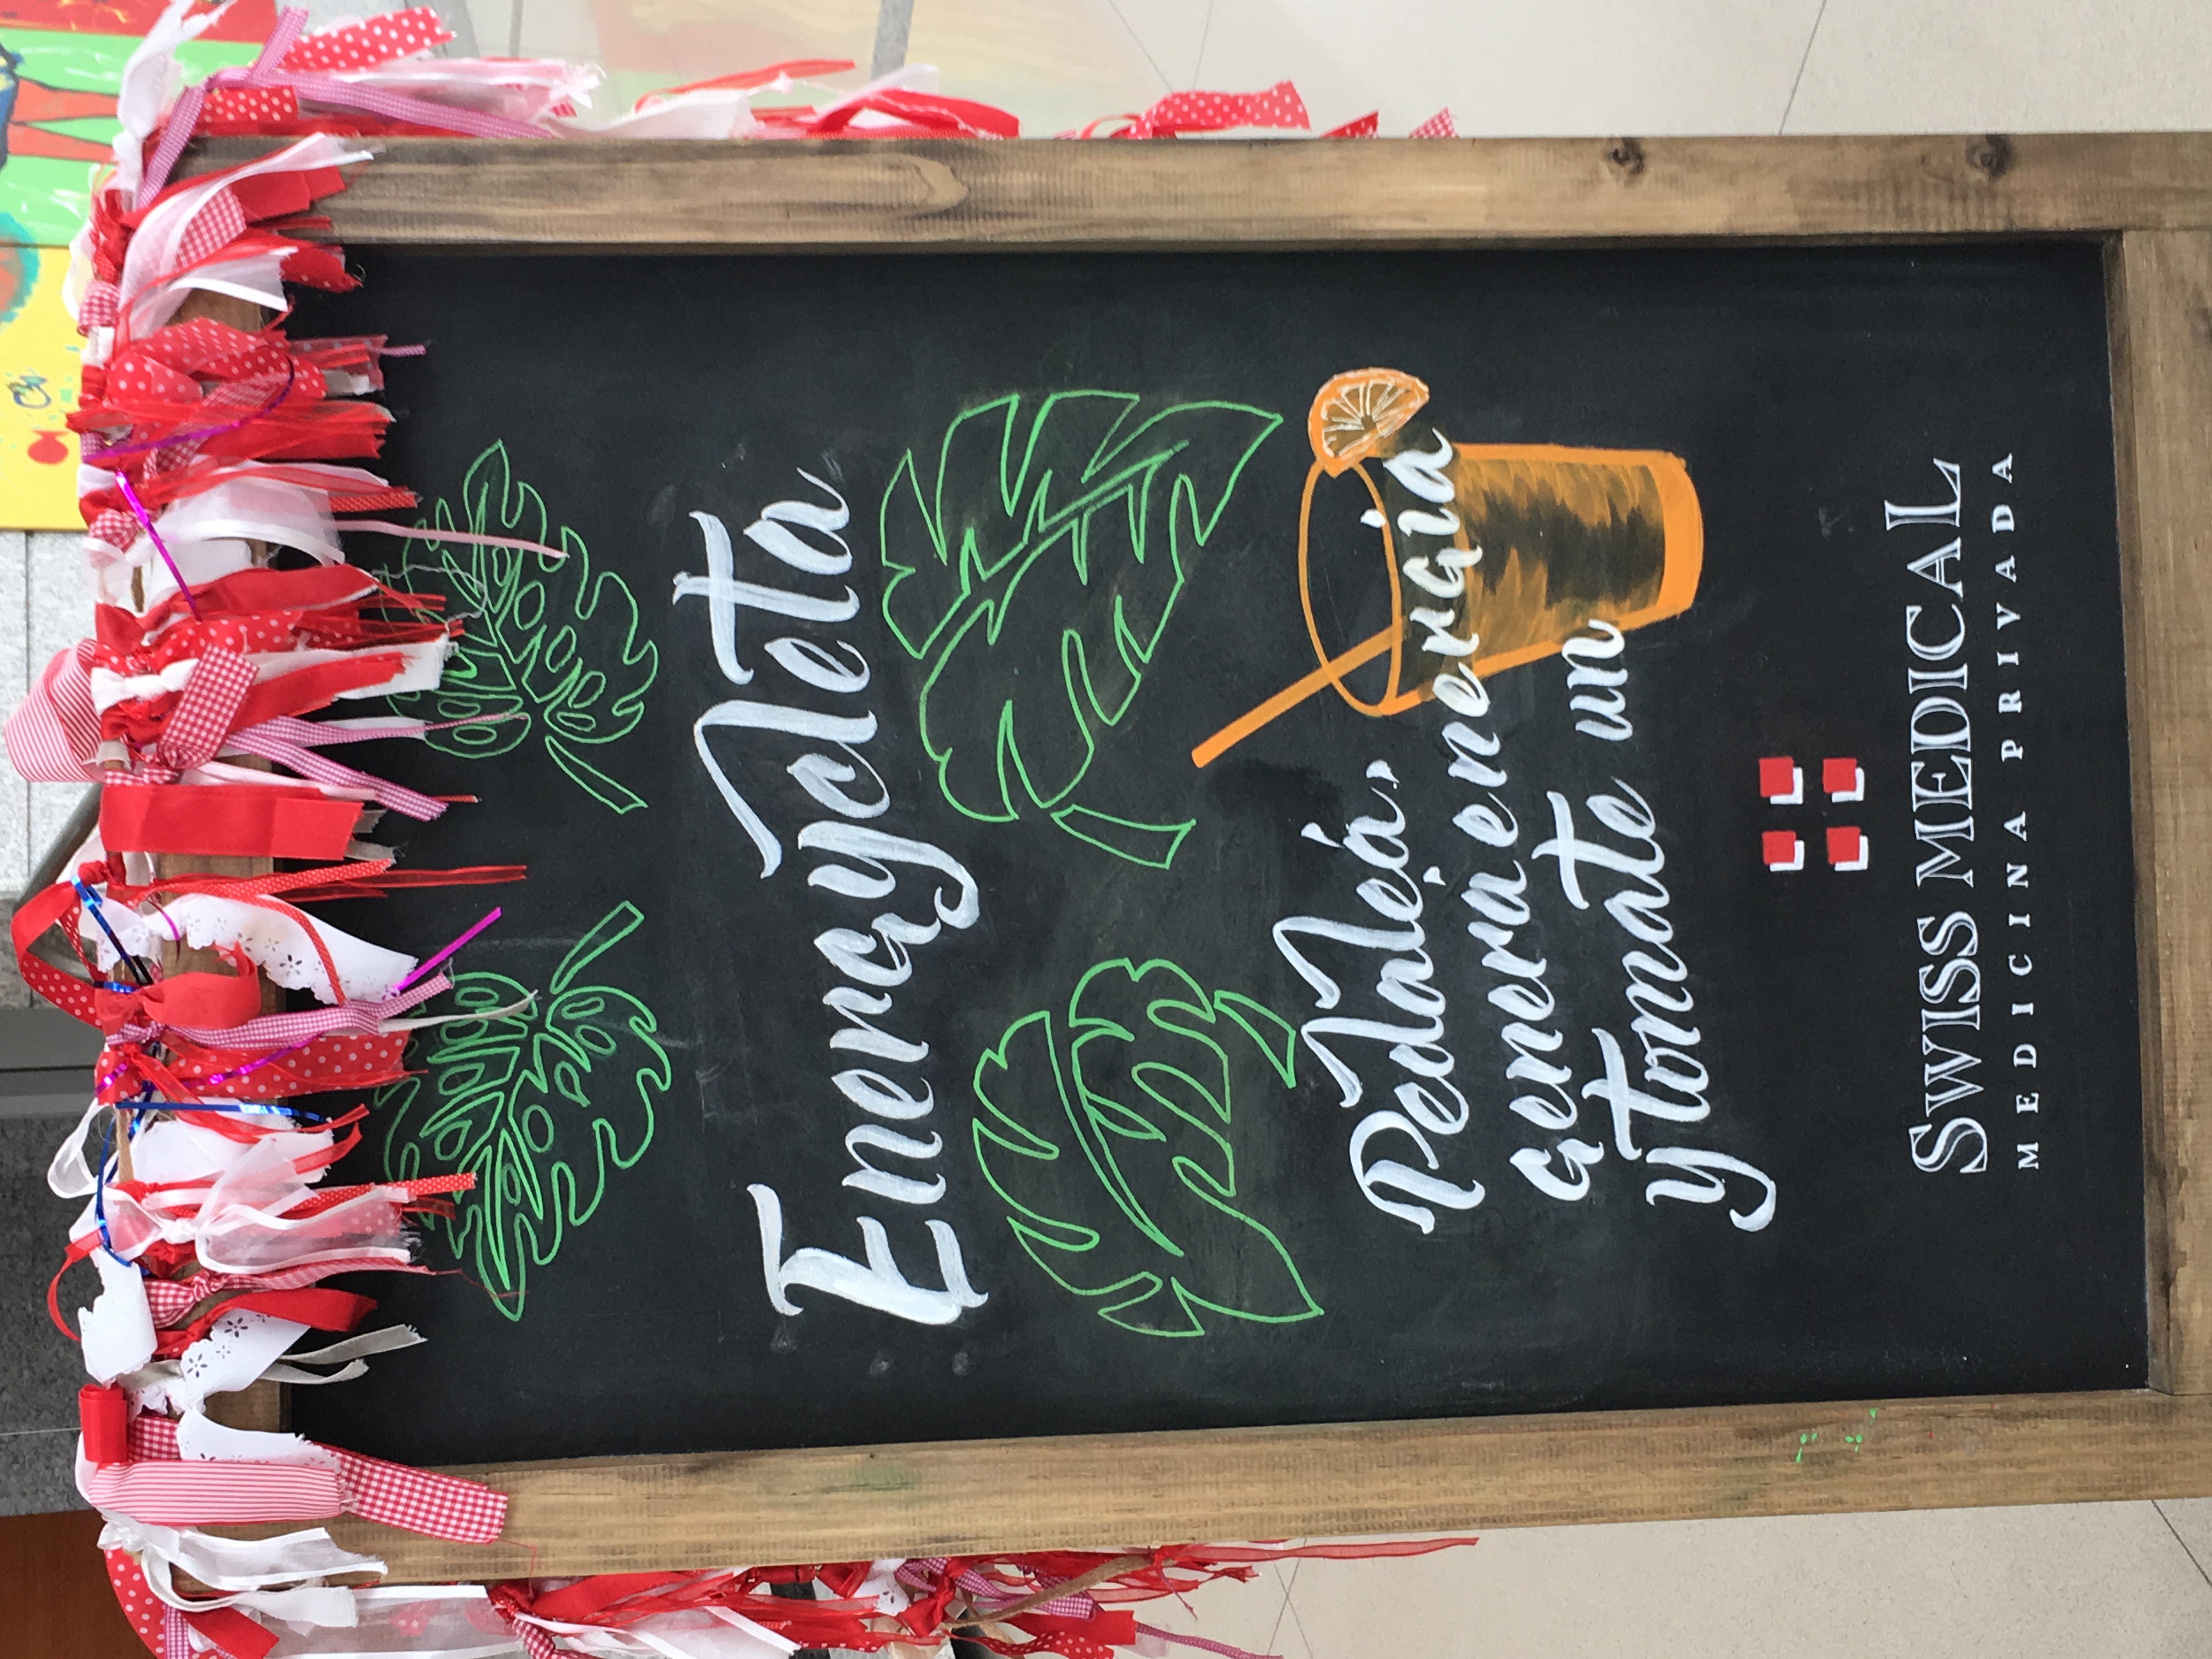 Energycleta
Pedaleá,
generá energía
y tomate un
SWISS MEDICAL
MEDICINA PRIVADA